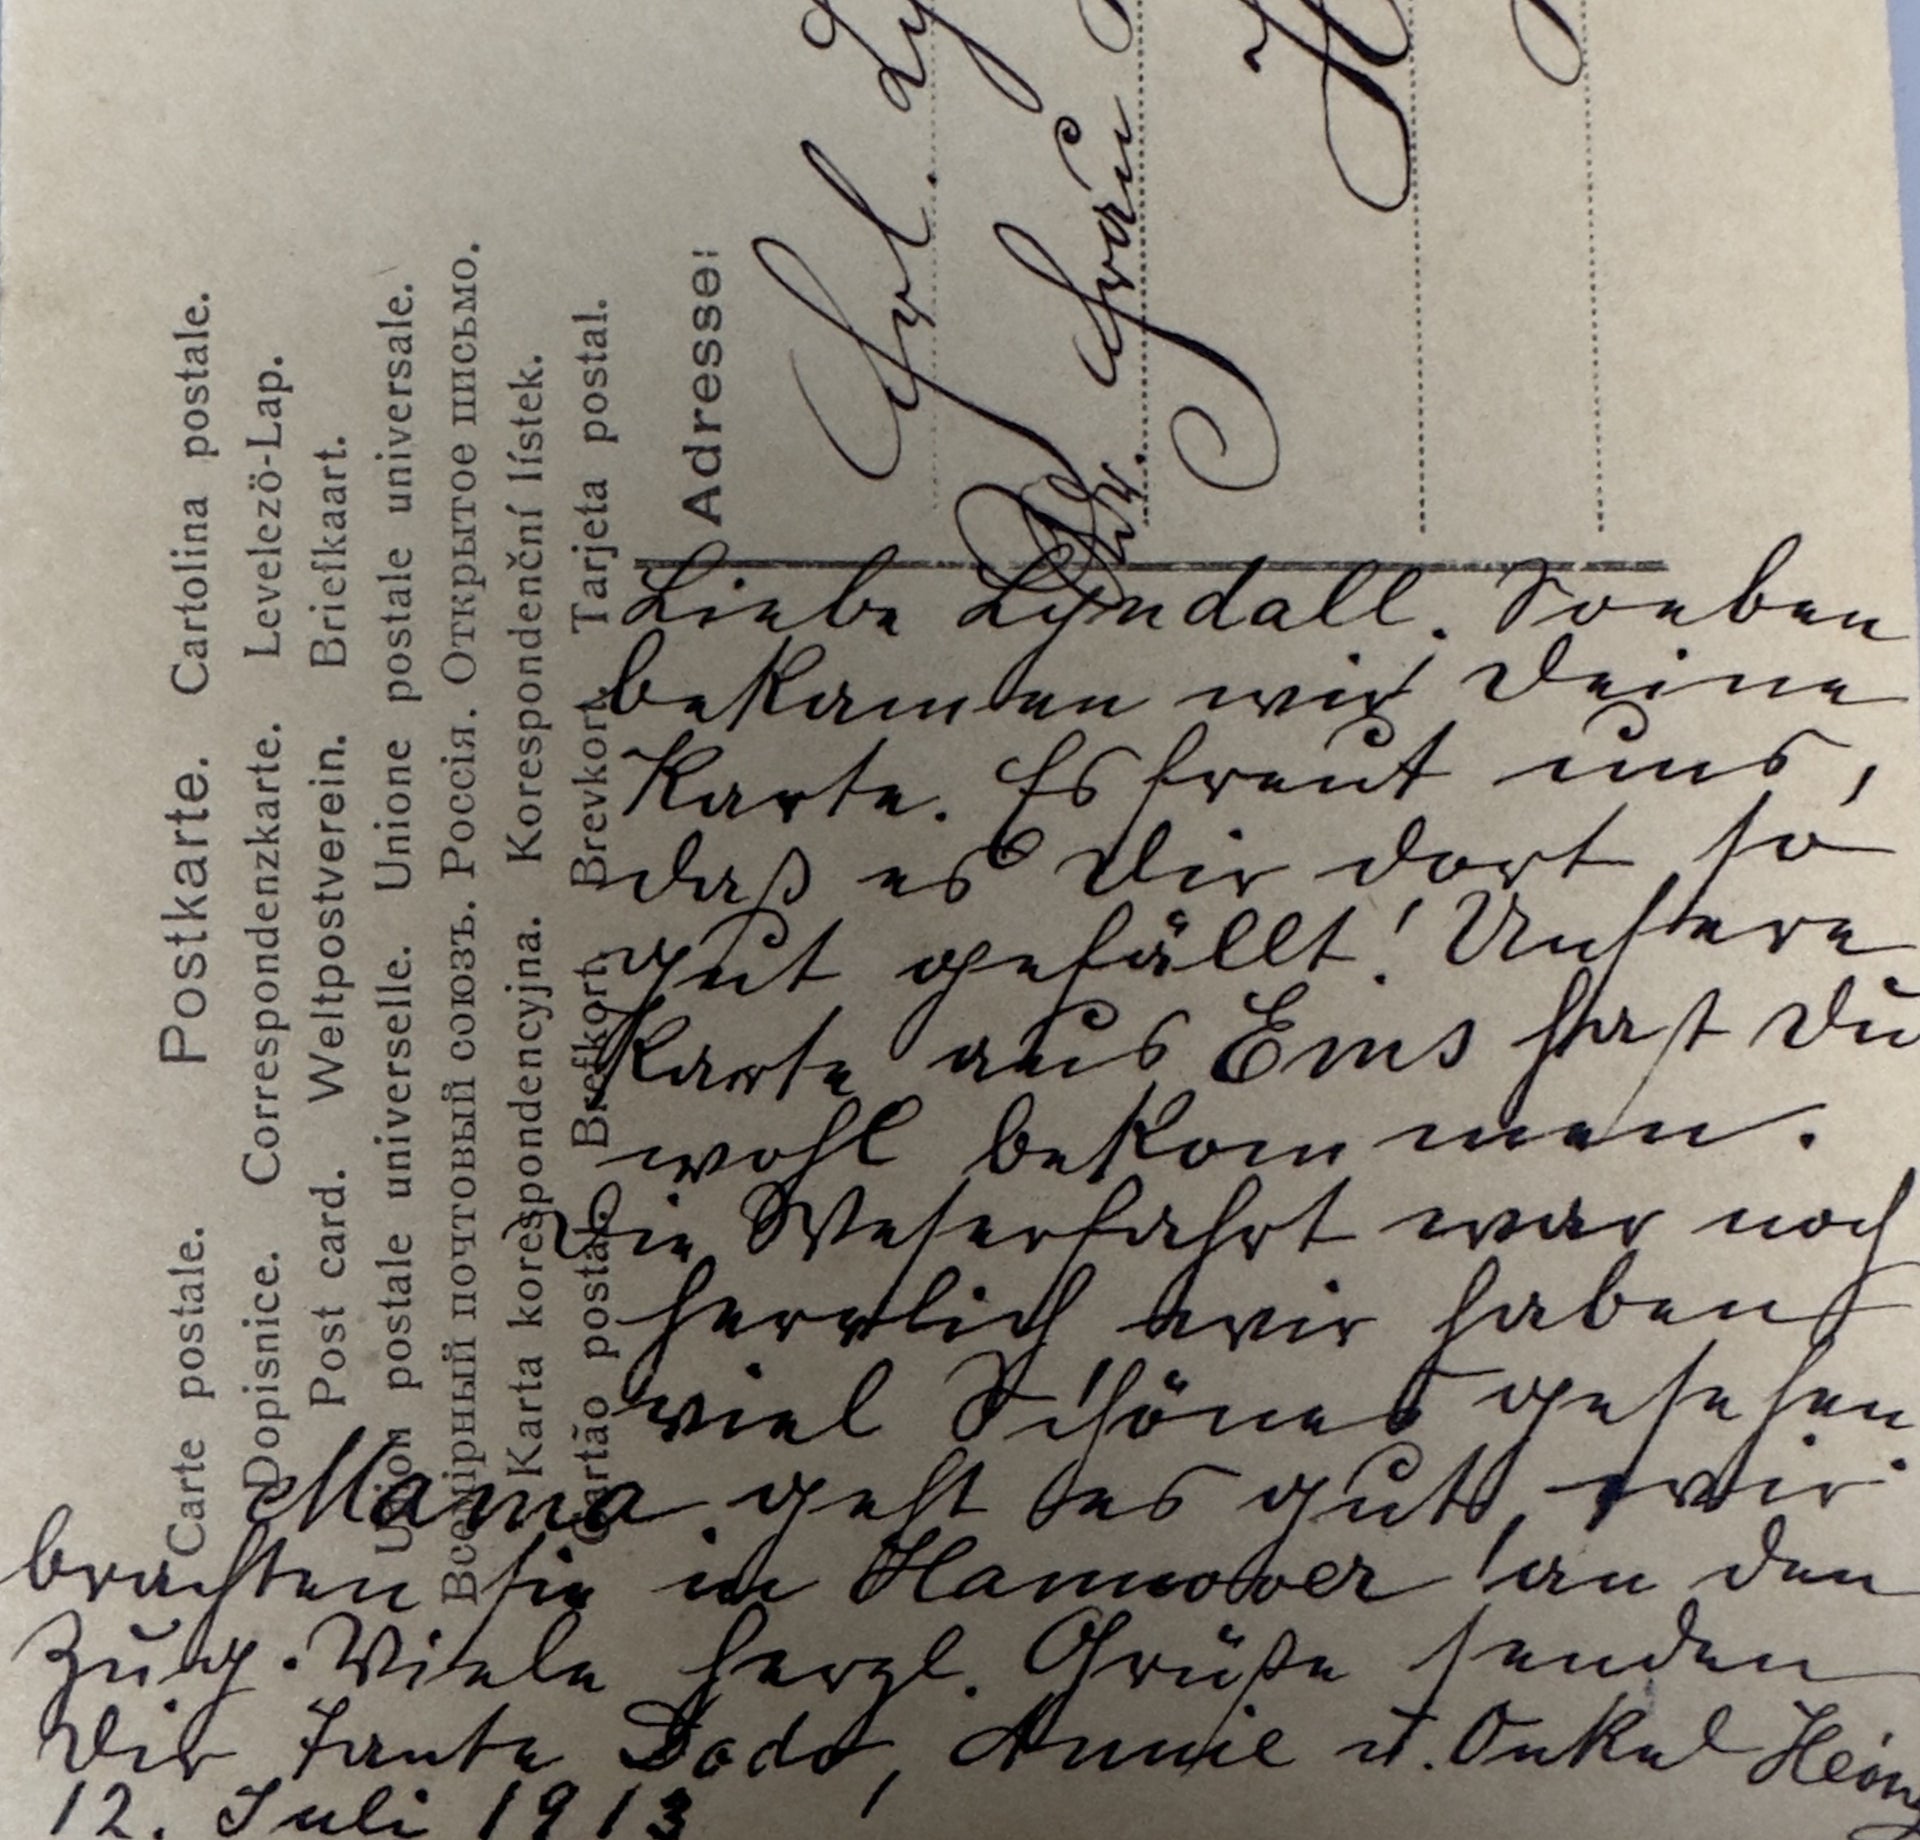 Carte postale. Postkarte. Cartolina postale.
Dopisnice. Correspondenzkarte. Levelező-Lap.
Post card. Weltpostverein. Briefkaart.
Union postale universelle. Unione postale universale.
Всемірный почтовый союзъ. Россія. Открытое письмо.
Karta korespondencyjna. Korespondenční lístek.
Cartão postal. Brefkort. Brevkort. Tarjeta postal.
Adresse:
Frl.
Adr. Frau
Liebe Lyndall. Soeben
bekamen wir Deine
Karte. Es freut uns,
daß es Dir dort so
gut gefällt! Unsere
Karte aus Ems hast Du
wohl bekommen.
Die Weserfahrt war noch
herrlich wir haben
viel Schönes gesehen.
Mama geht es gut, wir
brachten sie in Hannover an den
Zug. Viele herzl. Grüße senden
Dir Tante Dodo, Annie u. Onkel Heinz
12. Juli 1913